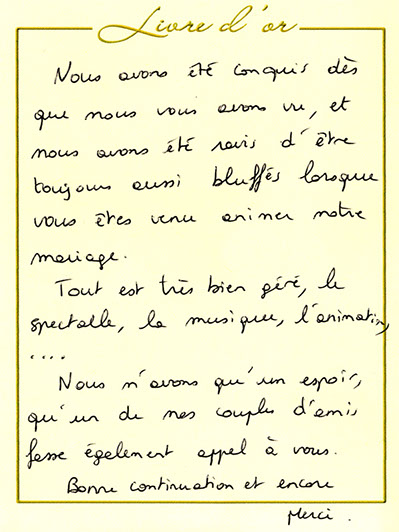 Livre d'or
Nous avons été conquis dès
que nous vous avons vu, et
nous avons été ravis d'être
toujours aussi bluffés lorsque
vous êtes venu animer notre
mariage.
Tout est très bien géré, le
spectacle, la musique, l'animation,
....
Nous n'avons qu'un espoir,
qu'un de nos couples d'amis
fasse également appel à vous.
Bonne continuation et encore
Merci.